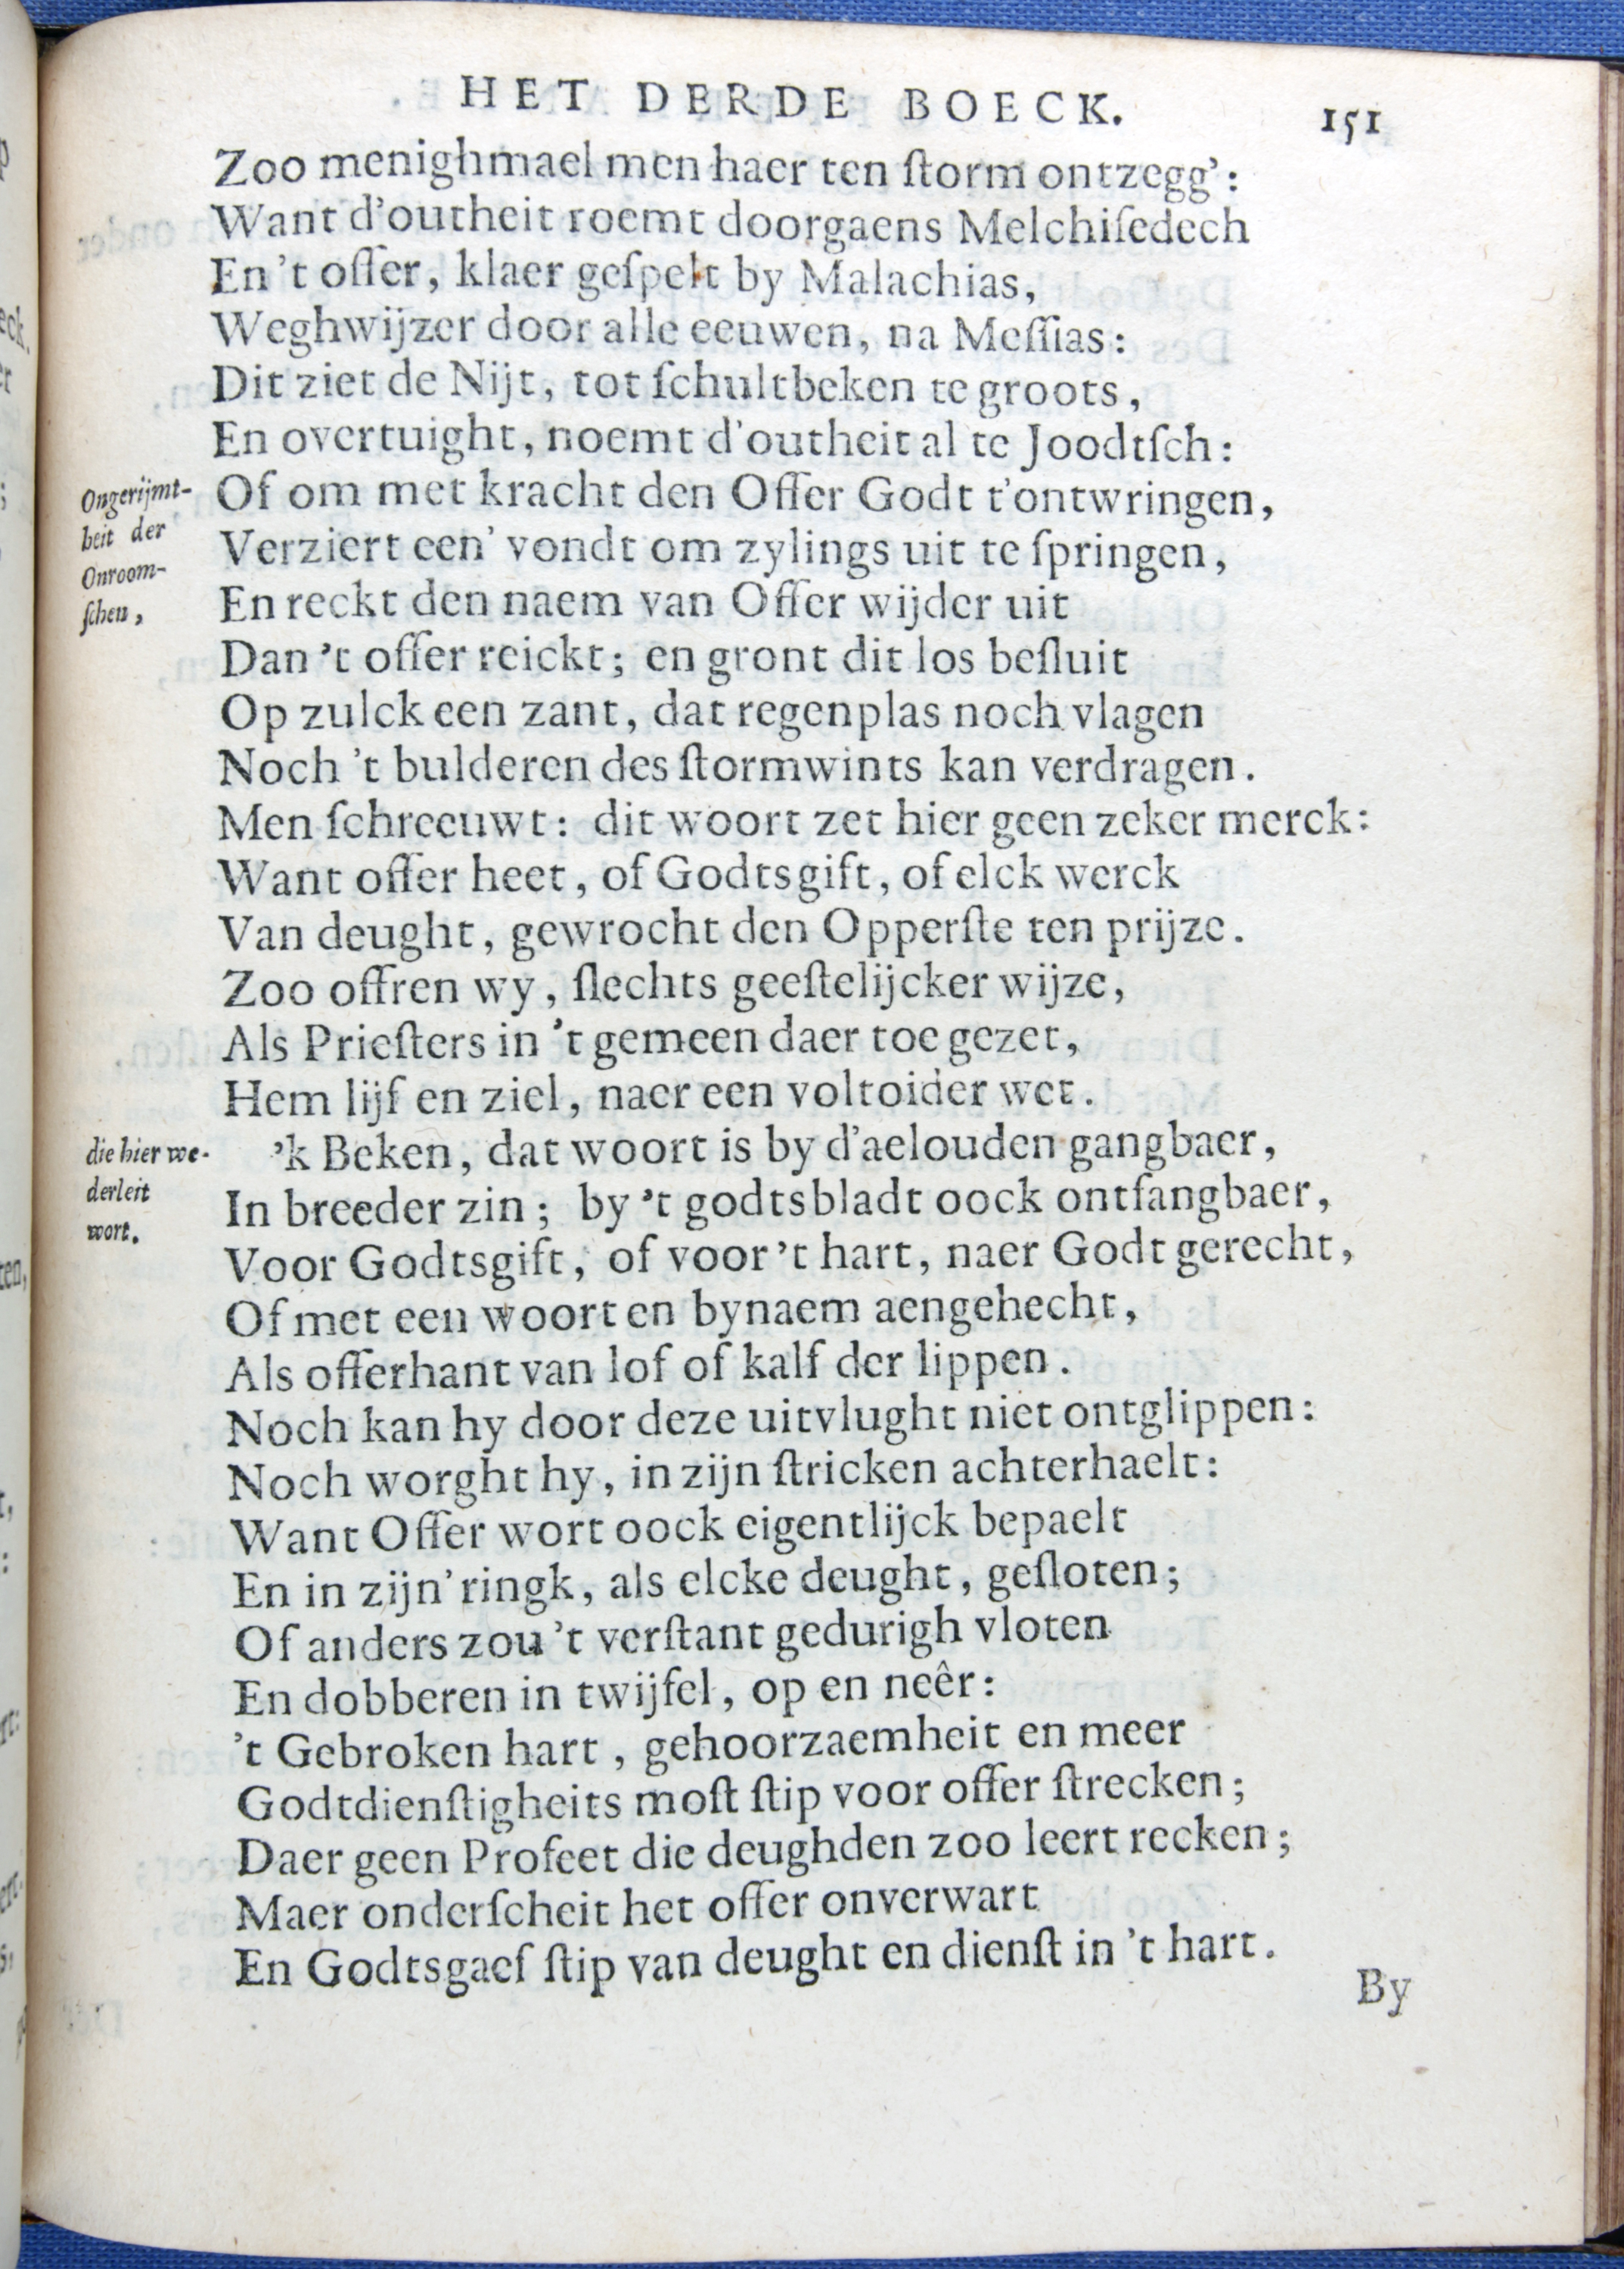 HET DERDE BOECK. 151
Zoo menighmael men haer ten ſtorm ontzegg':
Want d'outheit roemt doorgaens Melchiſedech
En 't offer, klaer geſpelt by Malachias,
Weghwijzer door alle eeuwen, na Meſſias:
Dit ziet de Nijt, tot ſchultbeken te groots,
En overtuight, noemt d'outheit al te Joodtſch:
Ongerijmt-
heit der
Onroom-
ſchen,
Of om met kracht den Offer Godt t'ontwringen,
Verziert een' vondt om zylings uit te ſpringen,
En reckt den naem van Offer wijder uit
Dan 't offer reickt; en gront dit los beſluit
Op zulck een zant, dat regenplas noch vlagen
Noch 't bulderen des ſtormwints kan verdragen.
Men ſchreeuwt: dit woort zet hier geen zeker merck:
Want offer heet, of Godtsgift, of elck werck
Van deught, gewrocht den Opperſte ten prijze.
Zoo offren wy, ſlechts geeſtelijcker wijze,
Als Prieſters in 't gemeen daer toe gezet,
Hem lijf en ziel, naer een voltoider wet.
die hier we-
derleit
wort.
'k Beken, dat woort is by d'aelouden gangbaer,
In breeder zin; by 't godtsbladt oock ontfangbaer,
Voor Godtsgift, of voor 't hart, naer Godt gerecht,
Of met een woort en bynaem aengehecht,
Als offerhant van lof of kalf der lippen.
Noch kan hy door deze uitvlught niet ontglippen:
Noch worght hy, in zijn ſtricken achterhaelt:
Want Offer wort oock eigentlijck bepaelt
En in zijn' ringk, als elcke deught, geſloten;
Of anders zou 't verſtant gedurigh vloten
En dobberen in twijfel, op en neêr:
't Gebroken hart, gehoorzaemheit en meer
Godtdienſtigheits moſt ſtip voor offer ſtrecken;
Daer geen Profeet die deughden zoo leert recken;
Maer onderſcheit het offer onverwart
En Godtsgaef ſtip van deught en dienſt in 't hart.
By